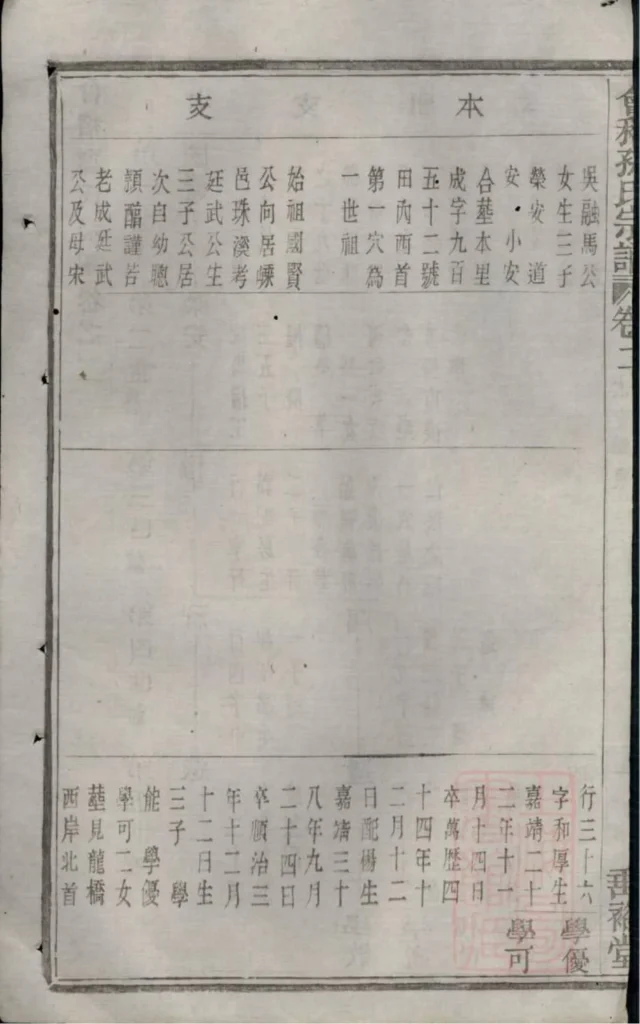 會稽孫氏宗譜
卷二
垂裕堂
本
支
支
吳融馬公
女生三子
榮安道
安小安
合墓本里
成字九百
五十二號
田內西首
第一穴為
一世祖
始祖國賢
公向居嵊
邑珠溪考
廷武公生
三子公居
次自幼聰
頴醕謹若
老成廷武
公及母宋
行三十六
字和厚生
嘉靖二十
二年十一
月十四日
卒萬歷四
十四年十
二月十二
日配楊生
嘉靖三十
八年九月
二十四日
卒順治三
年十二月
十二日生
三子 學
能 學優
學可二女
墓見龍橋
西岸北首
學優
學可